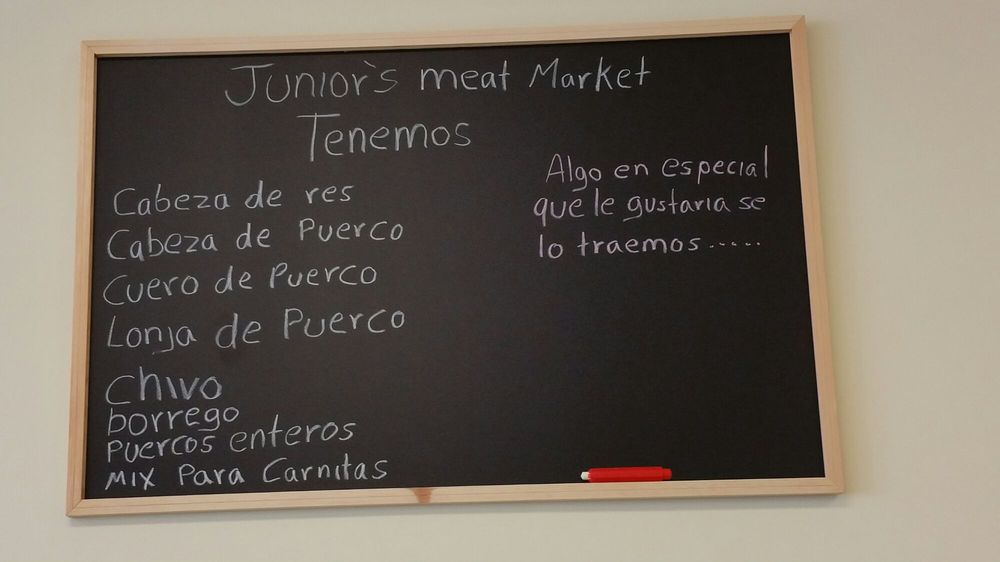 Junior's meat Market
Tenemos
Cabeza de res
Cabeza de Puerco
Cuero de Puerco
Lonja de Puerco
Chivo
borrego
Puercos enteros
Mix Para Carnitas
Algo en especial
que le gustaria se
lo traemos......